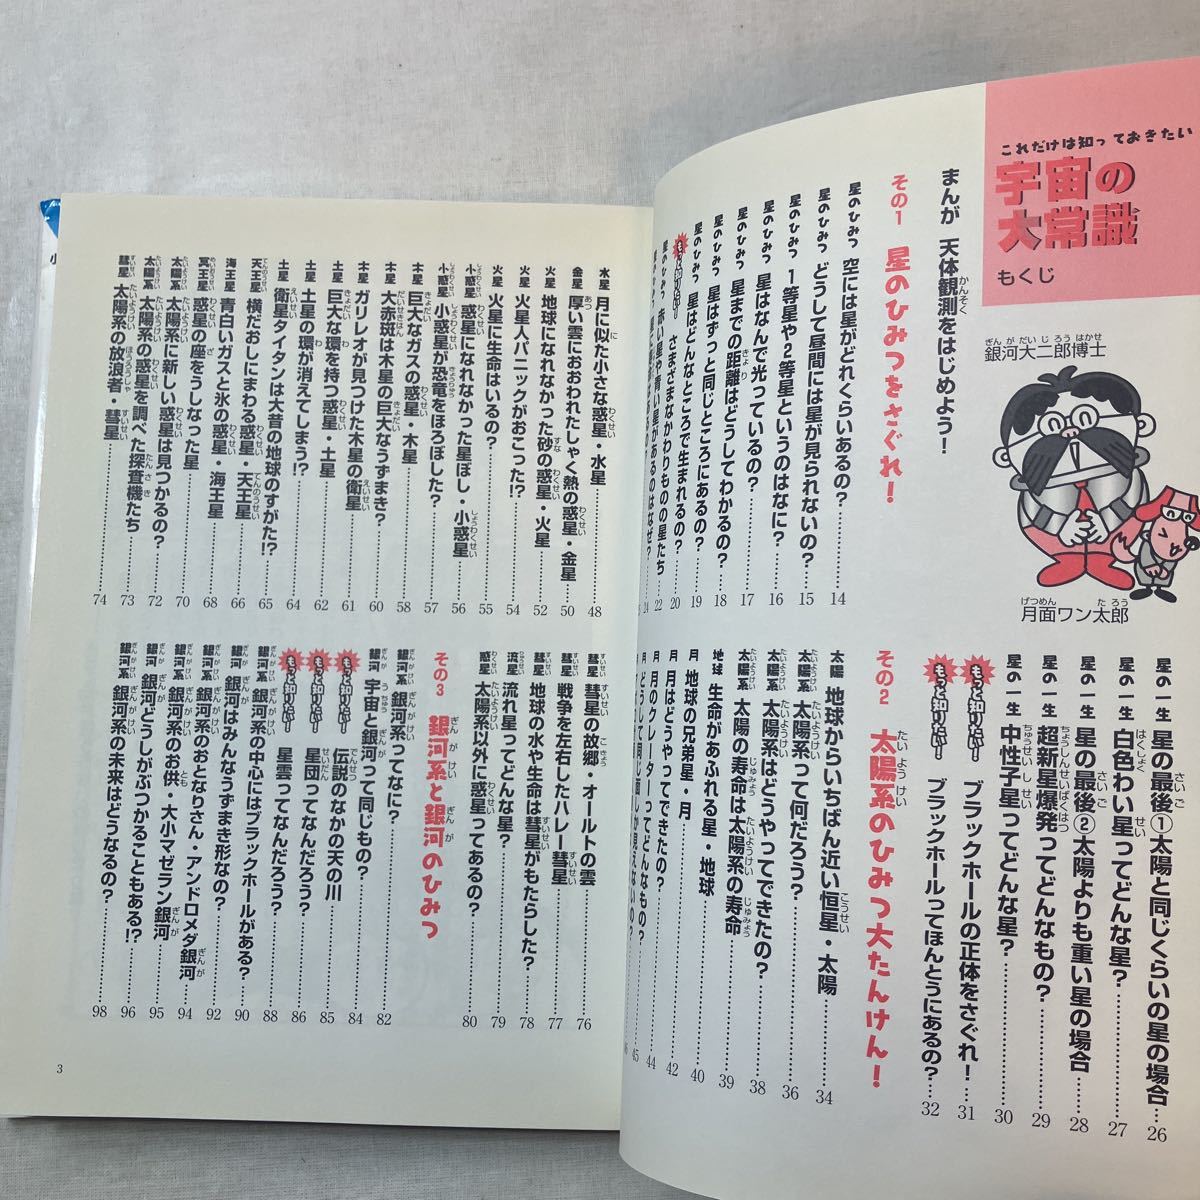 これだけは知っておきたい
宇宙の
大常識
もくじ
銀河大二郎博士
月面ワン太郎
まんが 天体観測をはじめよう!
その1 星のひみつをさぐれ!
星のひみつ 空には星がどれくらいあるの?……14
星のひみつ どうして昼間には星が見られないの?……15
星のひみつ 1等星や2等星というのはなに?……16
星のひみつ 星はなんで光っているの?……17
星のひみつ 星までの距離はどうしてわかるの?……18
星のひみつ 星はずっと同じところにあるの?……19
星のひみつ 星はどんなところで生まれるの?……20
もっと知りたい! さまざまなかわりものの星たち……22
星のひみつ 赤い星や青い星があるのはなぜ?……24
星の一生 星の最後①太陽と同じくらいの星の場合……26
星の一生 白色わい星ってどんな星?……27
星の一生 星の最後②太陽よりも重い星の場合……28
星の一生 超新星爆発ってどんなもの?……29
星の一生 中性子星ってどんな星?……30
もっと知りたい! ブラックホールの正体をさぐれ!……31
もっと知りたい! ブラックホールってほんとうにあるの?……32
その2 太陽系のひみつ大たんけん!
太陽 地球からいちばん近い恒星・太陽……34
太陽系 太陽系って何だろう?……36
太陽系 太陽系はどうやってできたの?……38
太陽系 太陽の寿命は太陽系の寿命……39
地球 生命があふれる星・地球……40
月 地球の兄弟星・月……42
月 月はどうやってできたの?……44
月 月のクレーターってどんなもの?……45
月 どうして同じ面しか見えないの?……46
水星 月に似た小さな惑星・水星……48
金星 厚い雲におおわれたしゃく熱の惑星・金星……50
火星 地球になれなかった砂の惑星・火星……52
火星 火星人パニックがおこった!?……54
火星 火星に生命はいるの?……55
小惑星 惑星になれなかった星ぼし・小惑星……56
小惑星 小惑星が恐竜をほろぼした?……57
木星 巨大なガスの惑星・木星……58
木星 大赤斑は木星の巨大なうずまき?……60
木星 ガリレオが見つけた木星の衛星……61
土星 巨大な環を持つ惑星・土星……62
土星 土星の環が消えてしまう!?……64
土星 衛星タイタンは大昔の地球のすがた!?……65
天王星 横だおしにまわる惑星・天王星……66
海王星 青白いガスと氷の惑星・海王星……68
冥王星 惑星の座をうしなった星……70
太陽系 太陽系に新しい惑星は見つかるの?……72
太陽系 太陽系の惑星を調べた探査機たち……73
彗星 太陽系の放浪者・彗星……74
彗星 彗星の故郷・オールトの雲……76
彗星 戦争を左右したハレー彗星……77
彗星 地球の水や生命は彗星がもたらした?……78
流星 流れ星ってどんな星?……79
惑星 太陽系以外に惑星ってあるの?……80
その3 銀河系と銀河のひみつ
銀河系 銀河系ってなに?……82
銀河 宇宙と銀河って同じもの?……84
もっと知りたい! 伝説のなかの天の川……85
もっと知りたい! 星団ってなんだろう?……86
もっと知りたい! 星雲ってなんだろう?……88
銀河系 銀河系の中心にはブラックホールがある?……90
銀河 銀河はみんなうずまき形なの?……92
銀河系 銀河系のおとなりさん・アンドロメダ銀河……94
銀河系 銀河系のお供・大小マゼラン銀河……95
銀河 銀河どうしがぶつかることもある!?……96
銀河系 銀河系の未来はどうなるの?……98
3